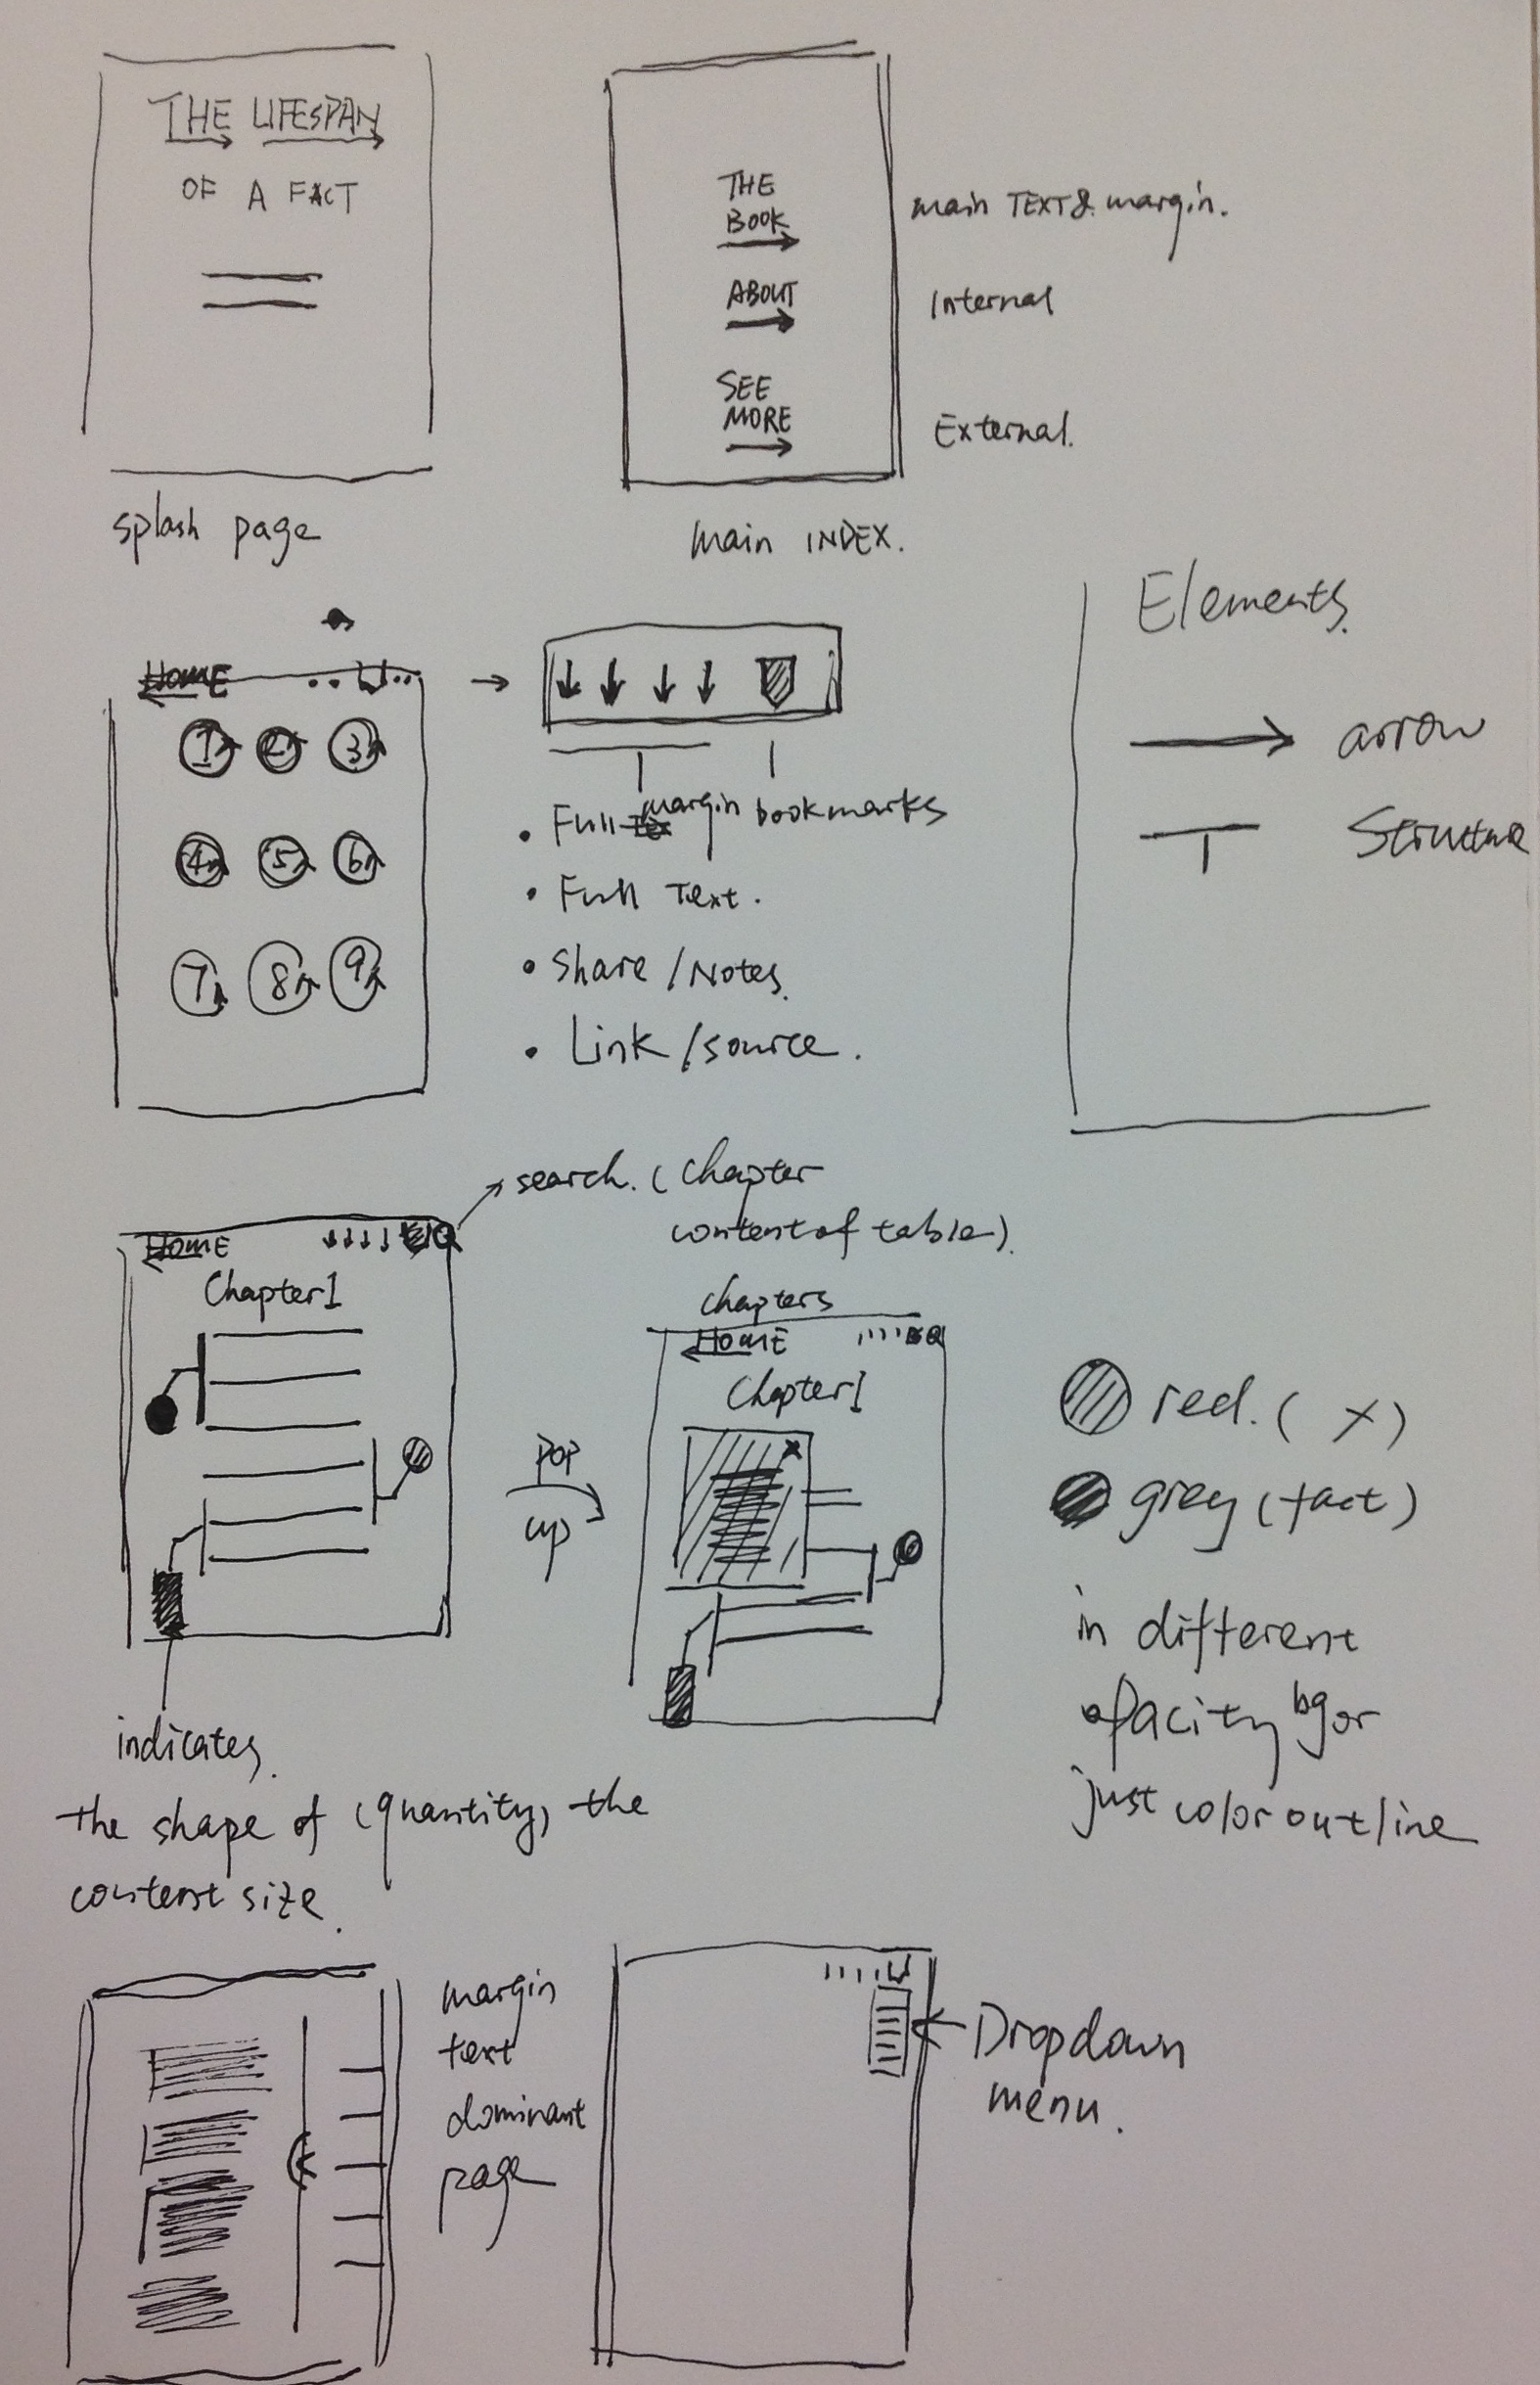 THE LIFESPAN
OF A FACT
splash page
THE
BOOK
ABOUT
SEE
MORE
main TEXT & margin.
Internal
External.
main INDEX.
HOME
1 2 3
4 5 6
7 8 9
• Full margin
bookmarks
• Full Text.
• Share / Notes.
• Link / source.
Elements.
arrow
Structure
search. (Chapter
content of table).
HOME
Chapter 1
POP
up
chapters
HOME
Chapter 1
x
red. ( x )
grey (fact)
in different
opacity bg or
just color outline
indicates.
the shape of (quantity) the
content size.
margin
text
dominant
page
Dropdown
menu.